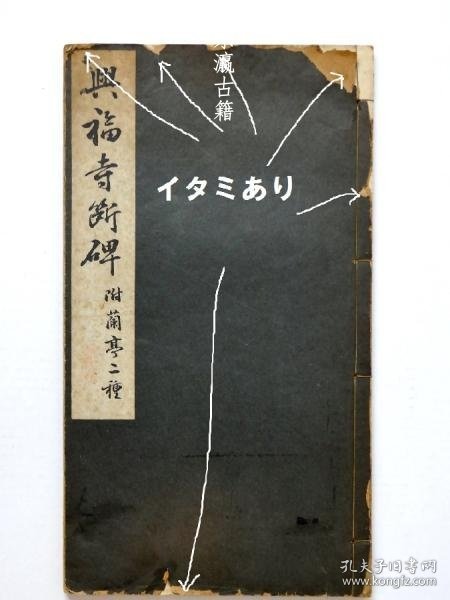 興福寺斷碑
附蘭亭二種
瀛古籍
イタミあり
孔夫子旧书网
www.kongfz.com